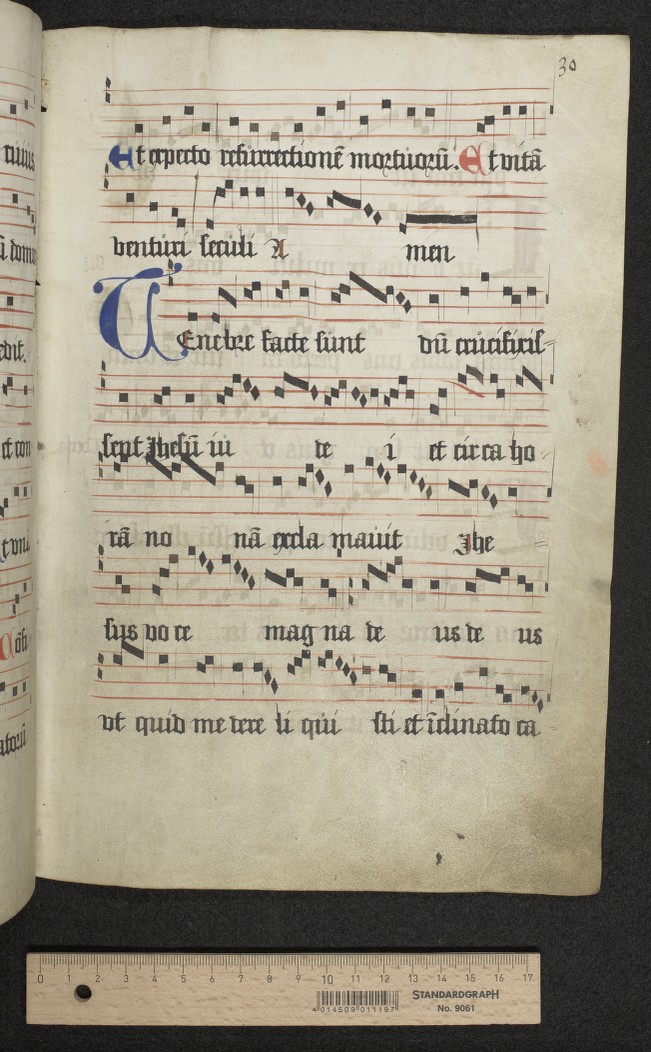 30
Et expecto resurrectionē mortuorū. Et vitā
venturi seculi A men
TEnebre facte sunt dū crucifixis
sent Jhesū iu de i et circa ho
rā no nā excla mauit Jhe
sus vo ce mag na de us de us
vt quid me dere li qui sti et īclinato ca
ninis
ū domi
edit.
et con
t vni
atorū
0 1 2 3 4 5 6 7 8 9 10 11 12 13 14 15 16 17
4 014509 011197
STANDARDGRAPH
No. 9061